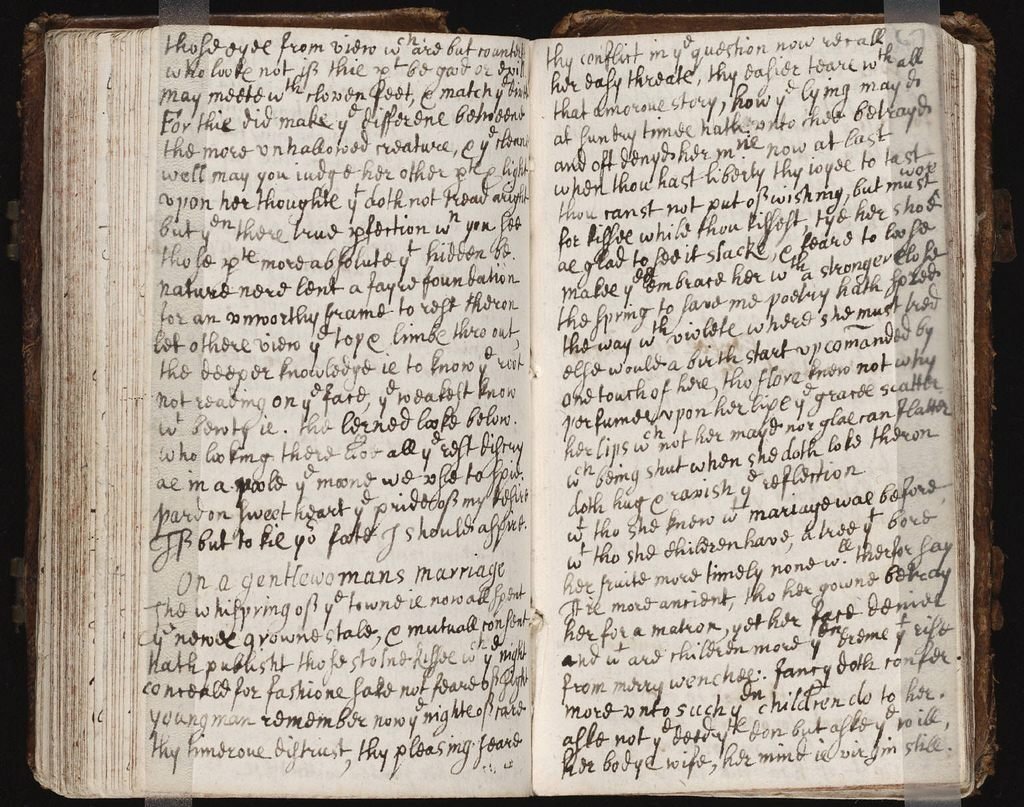 those eyes from view wch are but country
who looke not if this pt be good or evill
may meete wth cloven feet, & match ye
For this did make ye difference betweene
the more vnhallowed creature, & ye
well may you iudge her other pts & light
vpon her thoughts yt doth not read aright
but yen there true pfection wn you see
those pts more absolute yt hidden be.
nature nere lent a fayre foundation
for an vnworthy frame to rest theron
let others view ye top & limbs thro out,
the deeper knowledge is to know ye root
not reading on ye face, ye weakest know
wt bewty is. the lerned looke below.
who looking there doe all ye rest discry
as in a poole ye moone we vse to spie.
Pardon sweet heart ye pride of my desire
If but to kis yor foote I should aspire.
On a gentlewomans marriage
The whispring of ye towne is now all spent
ye newes growne stale, & mutuall consent
hath publisht those stolne kisses wch ye night
conceald for fashions sake not feare of sight
young man remember now ye nights of care
thy timerous distrust, thy pleasing feare
thy conflict in ye question now recall
her easy threats, thy easier teares wth all
that amorous story, how ye lying mayd
at sundry times hath vnto thee betrayd
and oft denyd her now at last
when thou hast liberty thy ioyes to tast
thou canst not put of wishing, but must woe
for kisses while thou kissest, tye her shoe
as glad to see it slacke, & feard to loose
makes yee embrace her wth a stronger close
the spring to save me poetry hath spred
the way wth violets where she must tred
else would a birth start vp comanded by
one touch of hers, tho flora knew not why
perfumes vpon her lips ye graces scatter
her lips wch not her mayd nor glas can flatter
wch being shut when she doth loke theron
doth hug & ravish ye reflection
wt tho she knew wt mariage was before
wt tho she children have, a tree yt bore
her fruits more timely none will therfor say
Are more ancient, tho her gowne betray
her for a matron, yet her face denies
and wt are children more yen dreme yt rise
from merry wenches. fancy doth confer
more vnto such yen children do to her.
aske not ye deed yts don but aske ye will,
Her bodys wife, her mind is virgin still.